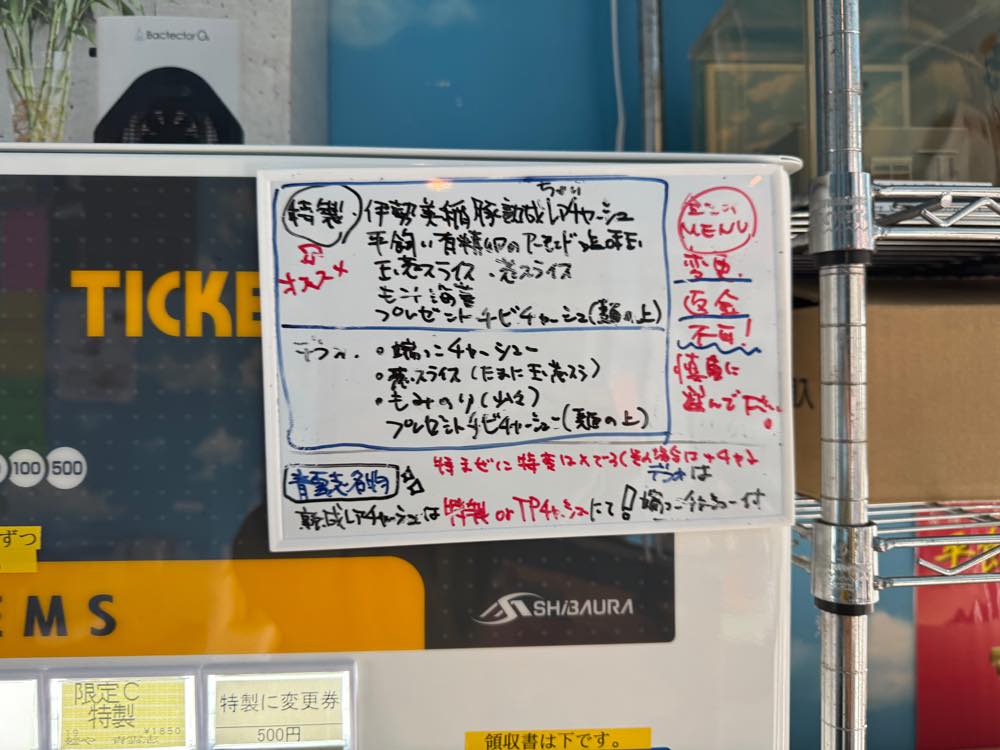 Bactector O3
TICKE
100 500
ずつ
EMS
SHiBAURA
特製
オススメ
伊勢美稲豚熟成レアチャーシュー
平飼い有精卵の
玉ねぎスライス・葱スライス
プレゼントチビチャーシュー(麺の上)
デフォ
・端っこチャーシュー
・葱スライス(たまに玉葱スラ)
・もみのり(少々)
プレゼントチビチャーシュー(麺の上)
MENU
変更
返金
不可!
慎重に
選んで下さい。
青雲志名物
デフォは
熟成レアチャーシューは特製 or TPチャーシューにて! 端っこチャーシュー付
限定C
特製
¥1850
麺や 青雲志
特製に変更券
500円
領収書は下です。